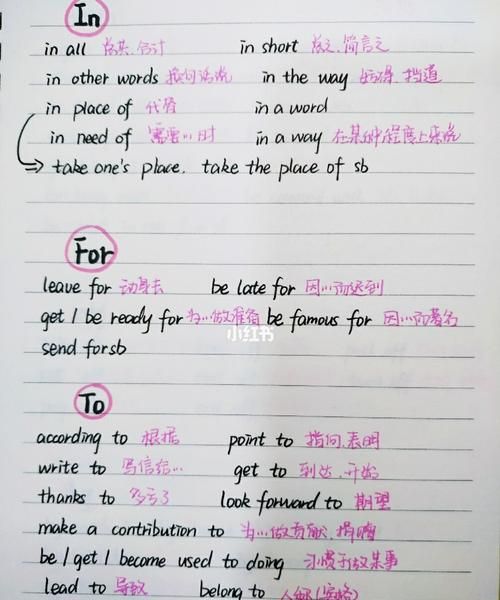 In
in all 总共.合计 in short 总之.简言之
in other words 换句话说 in the way 妨碍.挡道
in place of 代替 in a word
in need of 需要…时 in a way 在某种程度上来说
take one's place. take the place of sb
For
leave for 动身去 be late for 因…而迟到
get / be ready for 为…做准备 be famous for 因…而著名
小红书
send for sb
To
according to 根据 point to 指向.表明
write to 写信给… get to 到达.开始
thanks to 多亏了 look forward to 期望
make a contribution to 为…做贡献.捐赠
be / get / become used to doing 习惯于做某事
lead to 导致 belong to